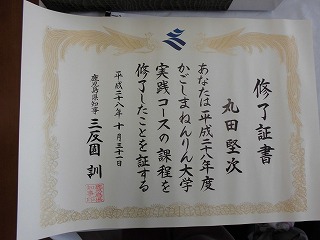 修了証書
丸田堅次
あなたは平成二十八年度
かごしまねんりん大学
実践コースの課程を
修了したことを証する
平成二十八年十月三十一日
鹿児島県知事 三反園訓